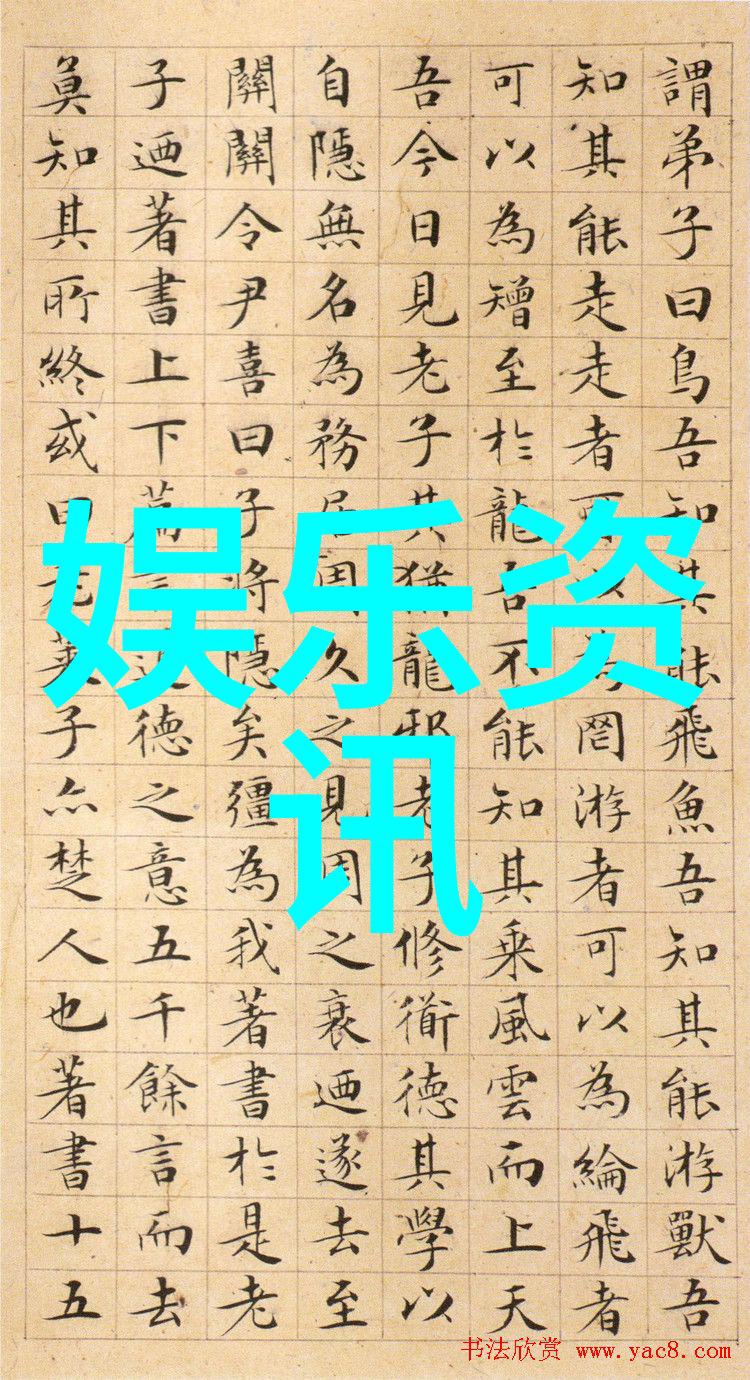 謂弟子曰鳥吾知其能飛魚吾知其能游獸吾
知其能走走者可以為罔游者可以為綸飛者
可以為矰至於龍吾不能知其乘風雲而上天
吾今日見老子其猶龍邪老子修衜德其學以
自隱無名為務居周久之見周之衰迺遂去至
關關令尹喜曰子將隱矣彊為我著書於是老
子迺著書上下篇言道德之意五千餘言而去
莫知其所終或曰老萊子亦楚人也著書十五
娱乐资
讯
书法欣赏 www.yac8.com